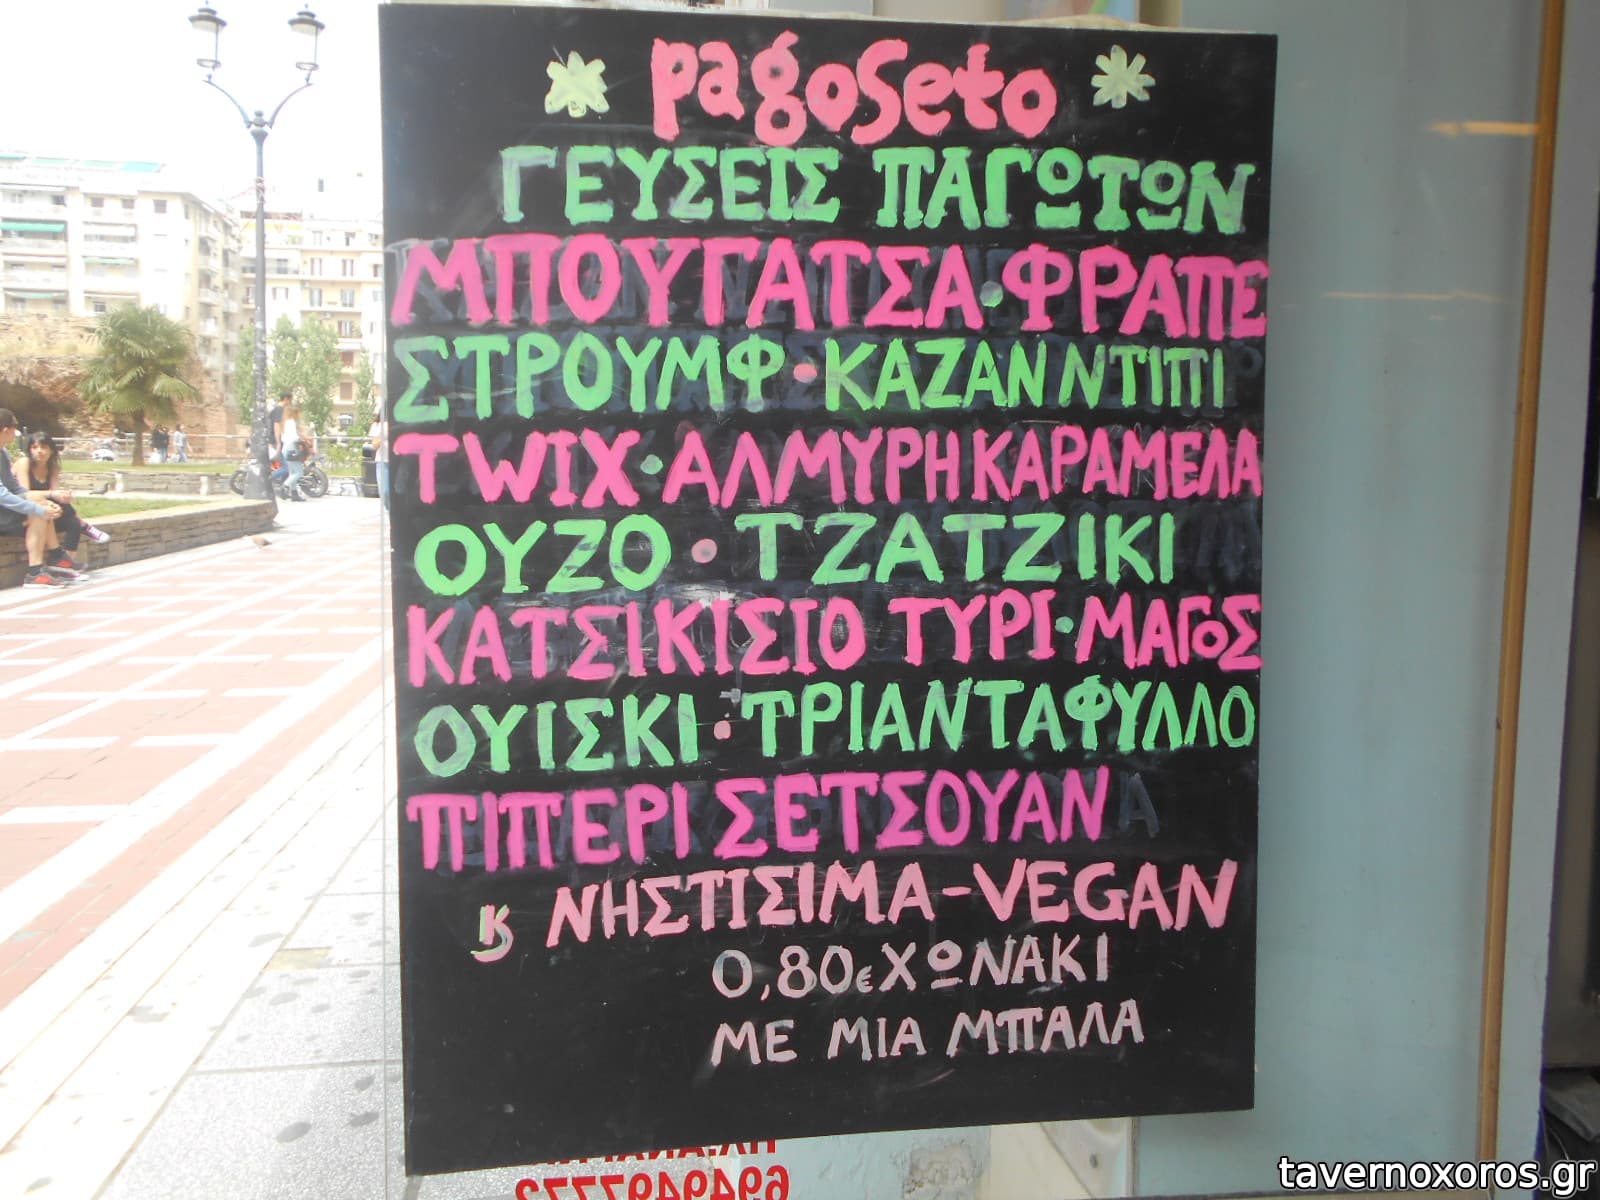 pagoseto
ΓΕΥΣΕΙΣ ΠΑΓΩΤΩΝ
ΜΠΟΥΓΑΤΣΑ·ΦΡΑΠΕ
ΣΤΡΟΥΜΦ·ΚΑΖΑΝ ΝΤΙΠΙ
TWIX·ΑΛΜΥΡΗ ΚΑΡΑΜΕΛΑ
ΟΥΖΟ·ΤΖΑΤΖΙΚΙ
ΚΑΤΣΙΚΙΣΙΟ ΤΥΡΙ·ΜΑΓΟΣ
ΟΥΙΣΚΙ·ΤΡΙΑΝΤΑΦΥΛΛΟ
ΠΙΠΕΡΙ ΣΕΤΣΟΥΑΝ
ϗ ΝΗΣΤΙΣΙΜΑ-VEGAN
0,80€ ΧΩΝΑΚΙ
ΜΕ ΜΙΑ ΜΠΑΛΑ
tavernoxoros.gr